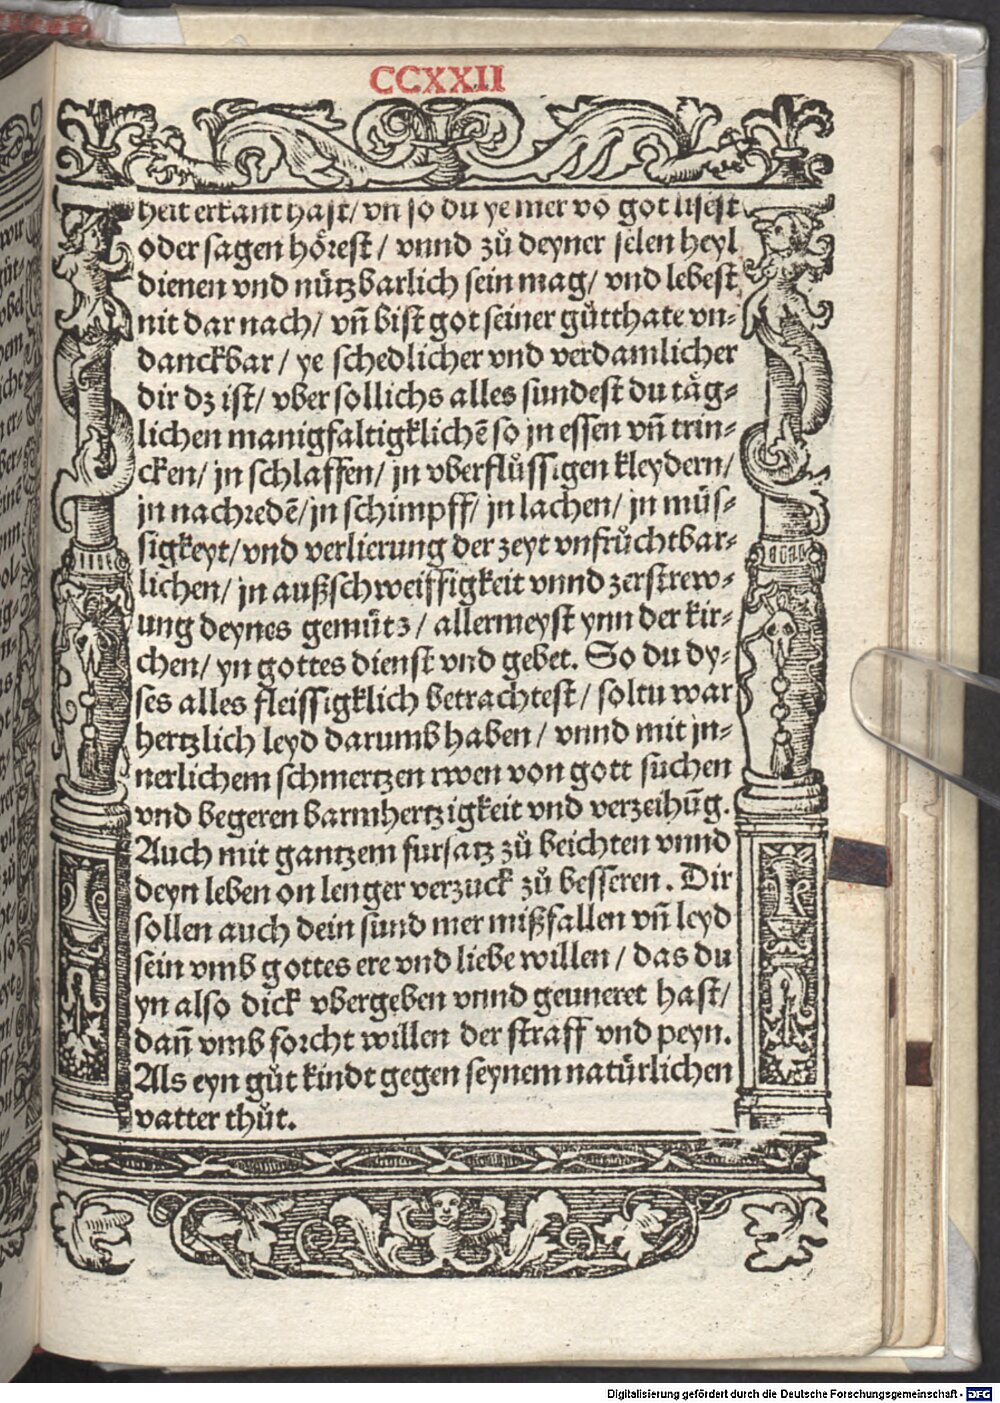 CCXXII
heit erkant hast/ vn̄ so du ye mer vō got lisest
oder sagen hörest / vnnd zů deyner selen heyl
dienen vnd nützbarlich sein mag/ vnd lebest
nit dar nach/ vn̄ bist got seiner gůtthate vn⸗
danckbar / ye schedlicher vnd verdamlicher
dir dz ist/ vber sollichs alles sundest du täg⸗
lichen manigfaltigklichē so jn essen vn̄ trin⸗
cken/ jn schlaffen/ jn vberflůssigen kleydern/
jn nachredē/ jn schimpff/ jn lachen/ jn müs⸗
sigkeyt/ vnd verlierung der zeyt vnfrůchtbar⸗
lichen/ jn außschweiffigkeit vnnd zerstrew⸗
ung deynes gemütz / allermeyst ynn der kir⸗
chen/ yn gottes dienst vnd gebet. So du dy⸗
ses alles fleissigklich betrachtest / soltu war
hertzlich leyd darumb haben / vnnd mit jn⸗
nerlichem schmertzen rwen von gott suchen
vnd begeren barmhertzigkeit vnd verzeihūg.
Auch mit gantzem fursatz zů beichten vnnd
deyn leben on lenger verzuck zů besseren. Dir
sollen auch dein sund mer mißfallen vn̄ leyd
sein vmb gottes ere vnd liebe willen / das du
yn also dick vbergeben vnnd geuneret hast/
dan̄ vmb forcht willen der straff vnd peyn.
Als eyn gůt kindt gegen seynem natürlichen
vatter thůt.
Digitalisierung gefördert durch die Deutsche Forschungsgemeinschaft - DFG